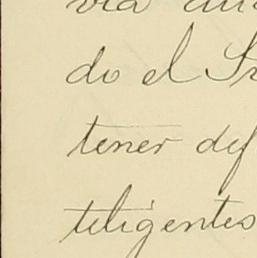 via
do el Sr
tener def
teligentes